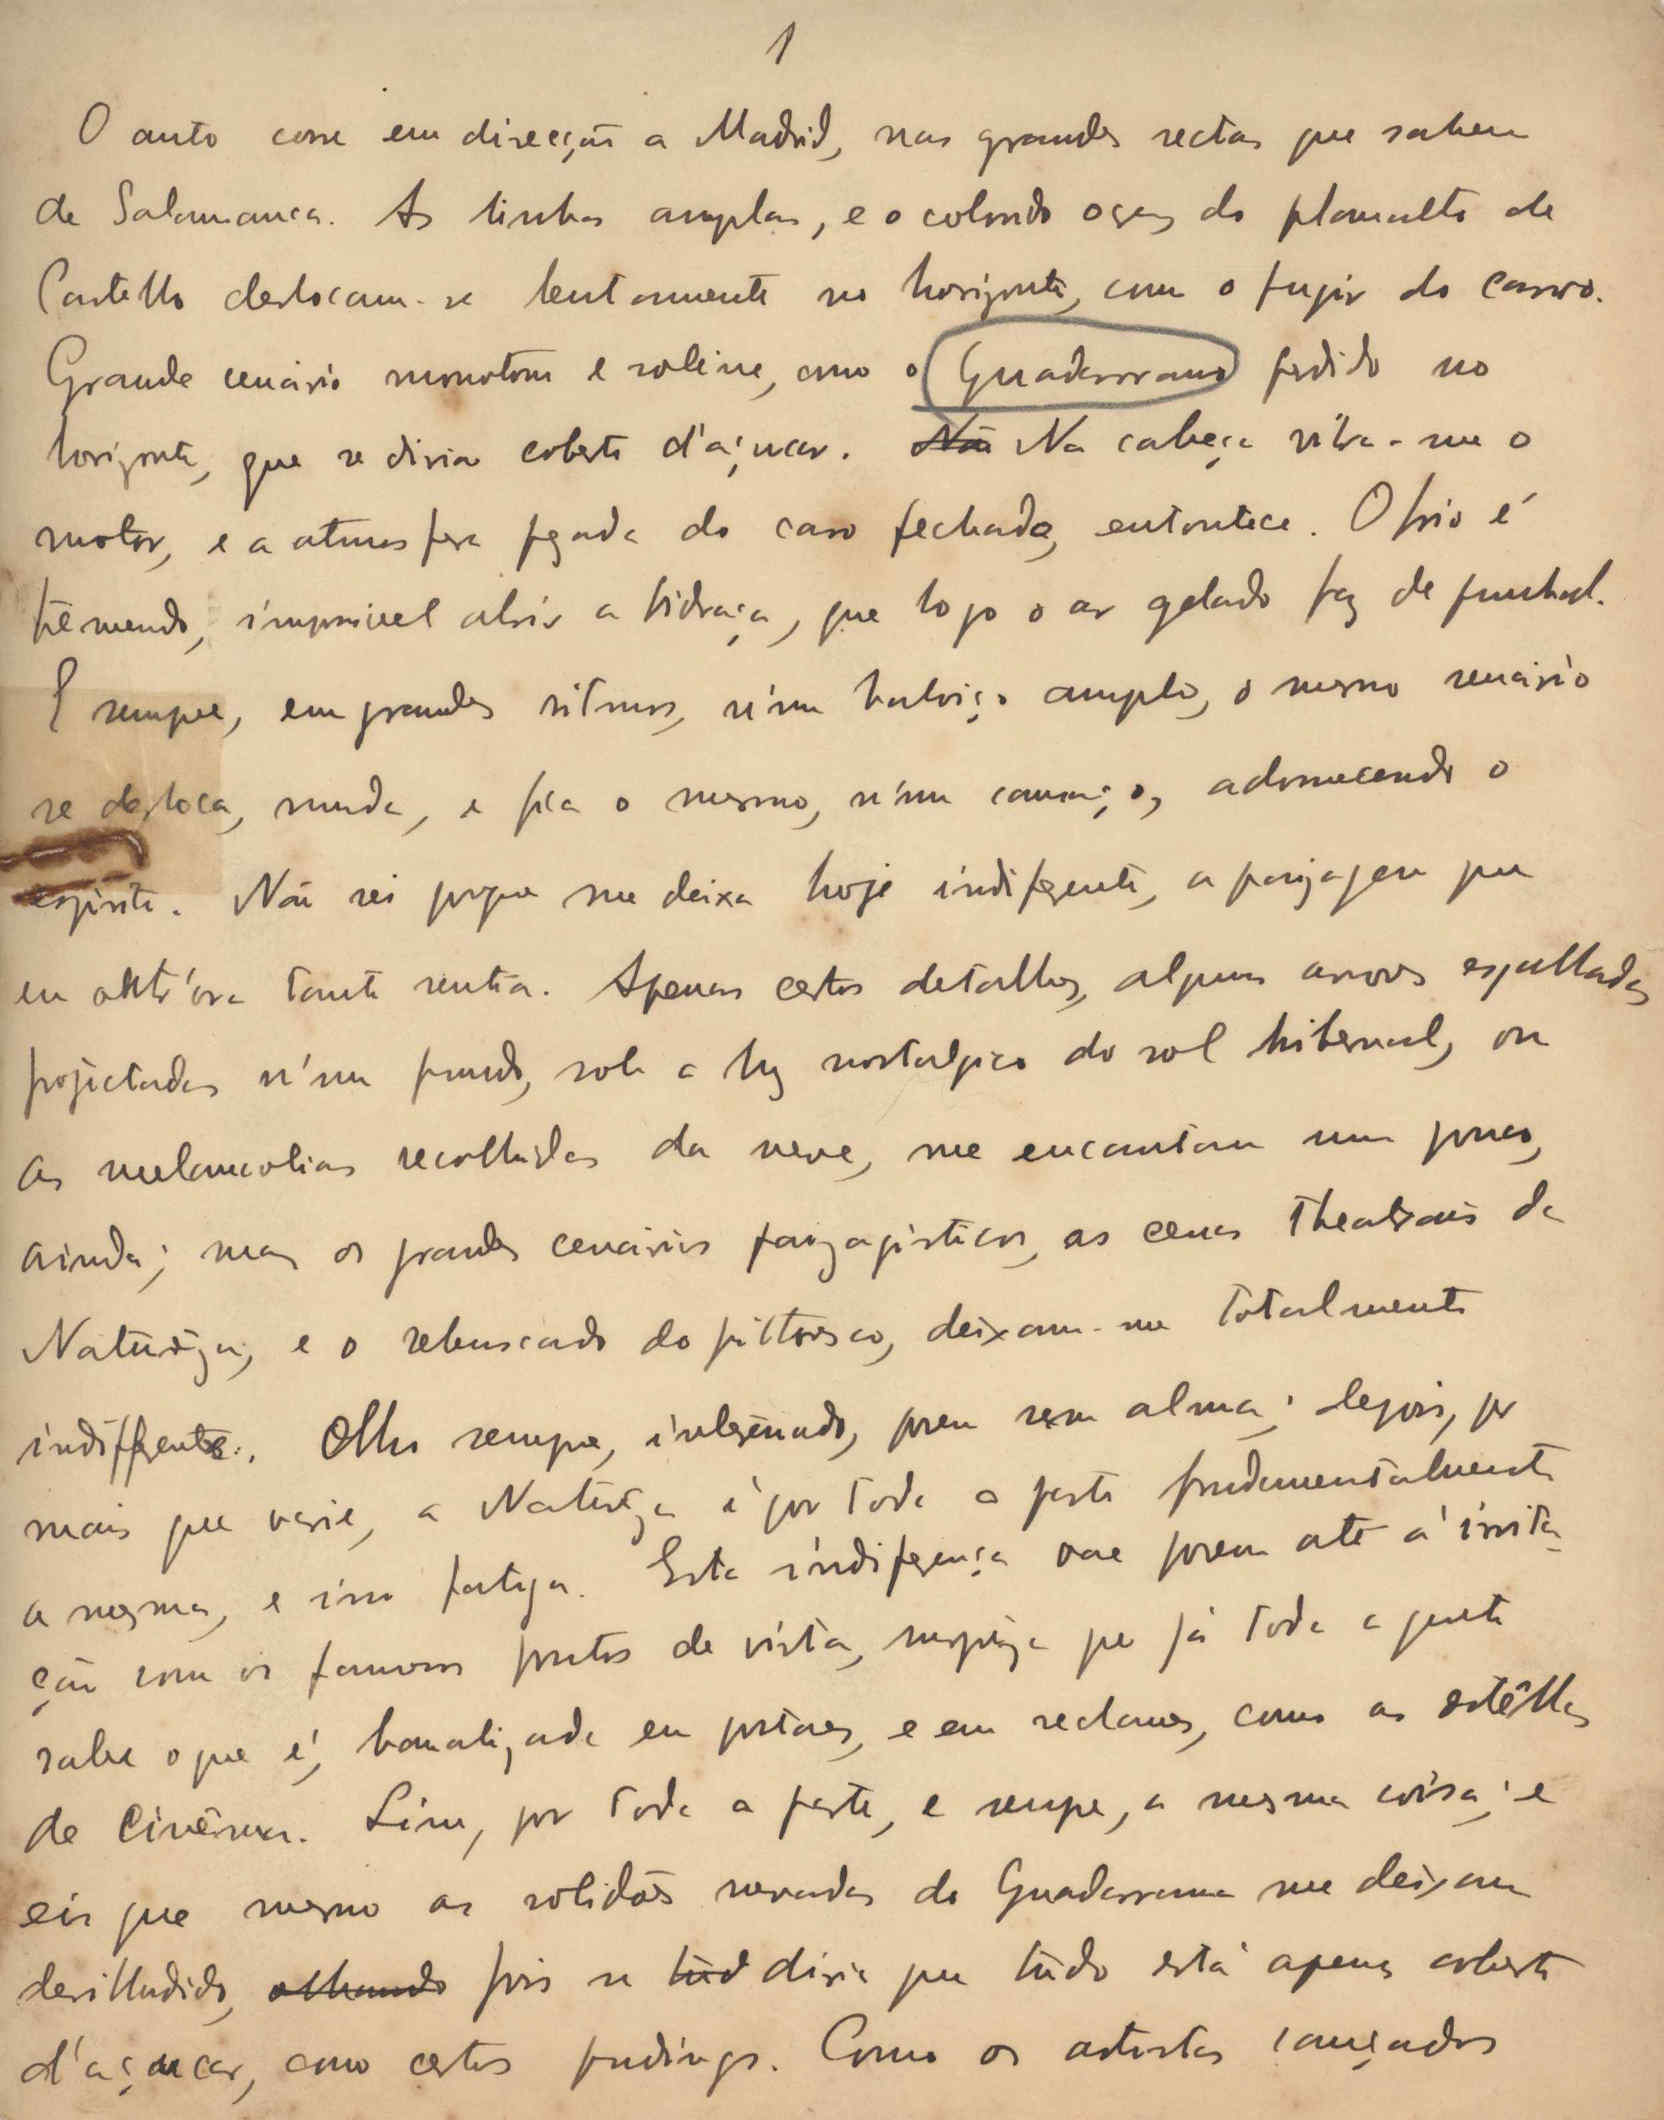 1
O auto corre em direcção a Madrid, nas grandes rectas que sahem
de Salamanca. As linhas amplas, e o colorido do planalto de
Castella deslocam-se lentamente no horizonte, com o fugir do carro.
Grande cenário monotono e solene, com o Guadarrama perdido no
horizonte, que se diria coberto d'açucar. Não Na cabeça vibra-me o
motor, e a atmosfera pesada do carro fechado, entontece. O frio é
tremendo, impossivel abrir a vidraça, que logo o ar gelado faz de punhal.
E sempre, em grandes ritmos, n'um baloiço amplo, o mesmo cenário
se desloca, muda, e fica o mesmo, n'um cansaço, adormecendo o
espirito. Não sei porque me deixa hoje indiferente, a paizagem que
eu outr'ora tanto sentia. Apenas certos detalhes, algumas arvores espalhadas
projectadas n'um fundo, sob a luz nostalgica do sol hibernal, ou
as melancolias recolhidas da neve, me encantam um pouco,
ainda; mas os grandes cenários paizagisticos, as cenas theatrais da
Naturêza, e o rebuscado do pittoresco, deixam-me totalmente
indifferente. Olho sempre, por em sem alma; depois, por
mais que varie, a Naturêza é por toda a parte fundamentalmente
a mesma, e isso fatiga. Esta indiferença vae porem até á irrita-
ção com os famosos pontos de vista, que já toda a gente
sabe o que é, banalizada em postaes, e em reclames, como as estrêllas
de Cinêma. Sim, por toda a parte, e sempre, a mesma coisa; e
eis que mesmo as solidões nevadas do Guadarrama me deixam
desilludido, olhando pois se tud diria que tudo está apenas coberto
d'açucar, como certos pudings. Como os artistas cançados